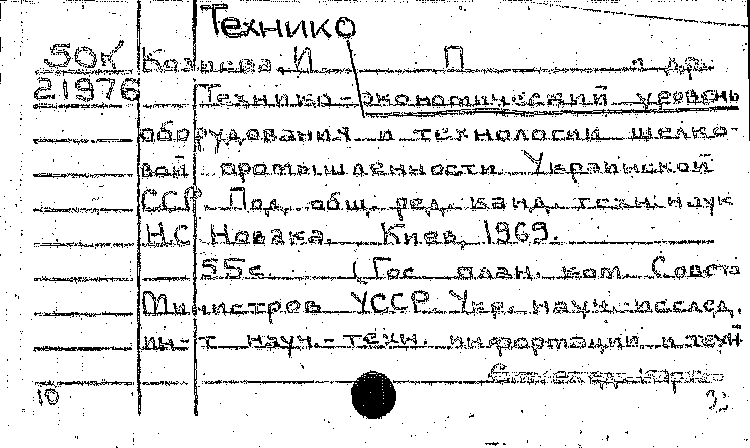 Технико
50К Козиева И П и др.
21976 Технико-экономический уровень
оборудования и технологии шелко-
вой промышленности Украинской
ССР. Под общ. ред. канд. техн. наук
Н.С. Новака. Киев, 1969.
55 с. (Гос. план. ком. Совета
Министров УССР Укр. науч.-исслед.
ин-т науч.-техн. информации и техн
10